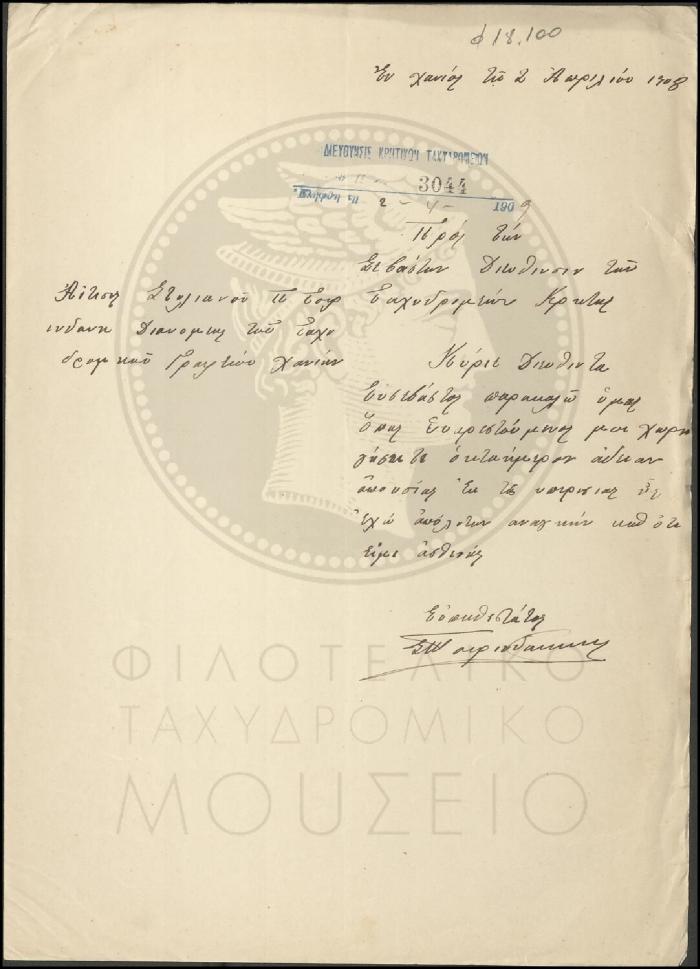 φ 18.100
Ἐν Χανίοις τῇ 2 Ἀπριλίου 1908
ΔΙΕΥΘΥΝΣΙΣ ΚΡΗΤΙΚΩΝ ΤΑΧΥΔΡΟΜΕΙΩΝ
3044
2 - 4 - 1909
Πρὸς τὴν
Σεβαστὴν Διεύθυνσιν τῶν
Ταχυδρομείων Κρήτης
Αἴτησις Στυλιανοῦ Π
Διανομέως τοῦ Ταχυ
δρομικοῦ Γραφείου Χανίων
Κύριε Διευθυντὰ
Εὐσεβάστως παρακαλῶ ὑμᾶς
ὅπως εὐαρεστούμενος μοι χορη
γήσητε ὀκταήμερον ἄδειαν
ἀπουσίας ἐκ τῆς υπηρεσίας
ἔχω ἀπόλυτον αναγκην καθ ὅτι
εἶμε ἀσθενής
Εὐπειθέστατος
ΦΙΛΟΤΕΛΙΚΟ
ΤΑΧΥΔΡΟΜΙΚΟ
ΜΟΥΣΕΙΟ